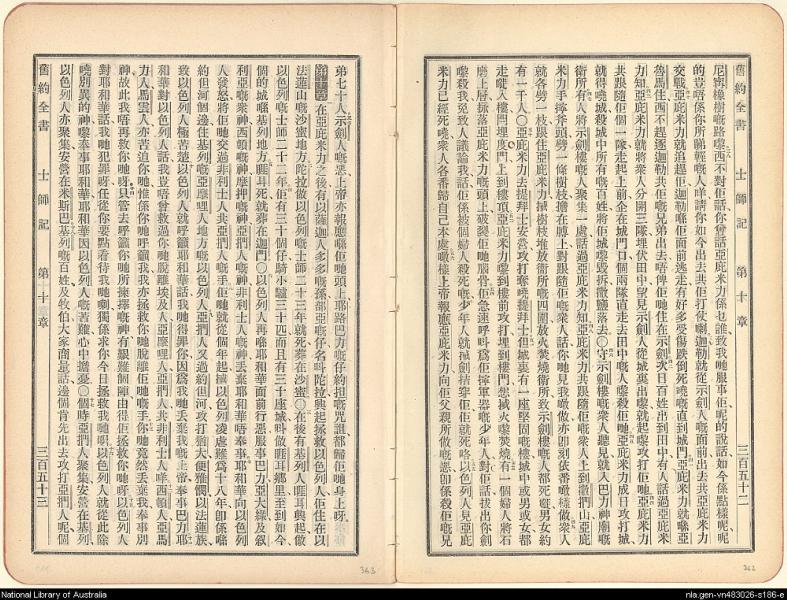 尼嘅橡樹嘅路嚟西不對佢話你曾話亞庇米力係乜誰致我哋服事佢呢的說話如今係點樣呢呢
的豈唔係你所睇輕嘅人咩請你如今出去共佢打仗喇迦勒就從示劍人嘅面前出去共亞庇米力
交戰亞庇米力就追趕佢迦勒喺佢面前逃走有好多受傷跌倒死嘅直到城門亞庇米力就喺亞
魯馬住西不趕逐迦勒共佢嘅兄弟出去唔俾佢哋住在示劍次日百姓出到田中有人話過亞庇米
力知亞庇米力就將衆人分開三隊埋伏田中望見示劍人從城裏出嚟就起嚟攻打佢哋亞庇米力
共跟隨佢個一隊走起上前企在城門口個兩隊直走去田中嘅人嚟殺佢哋亞庇米力成日攻打城
就得嘵城殺城中所有嘅百姓將佢城嚟毀拆撒鹽落去○守示劍樓嘅衆人聽見就入巴力神廟嘅
衛所有人將示劍樓嘅人聚集一處話過亞庇米力知亞庇米力共跟隨佢嘅衆人上到撒捫山亞庇
米力手擰斧頭劈一條樹枝擔在膊上對跟隨佢嘅衆人話你哋見我噉做亦卽刻依番噉樣做衆人
就各劈一枝跟住亞庇米力攎樹枝堆放衛所嘅四圍放火焚燒衛所致示劍樓嘅人都死曉男女約
有一千人○亞庇米力去提拜士安營攻打奪嘵提拜士但城裏有一座堅固嘅樓城中或男或女都
走嚟入樓閂埋度門上到樓頂亞庇米力嚟到樓前攻打埋到樓門想用火嚟焚燒有一個婦人將石
磨上層掟落亞庇米力嘅頭上破裂佢哋腦骨佢急速呼叫爲佢擰軍器嘅少年人對佢話拔出你劍
嚟殺我免致人議論我話佢係被個婦人殺死嘅少年人就拔劍拮穿佢佢就死咯以色列人見亞庇
米力已經死嘵衆人各番歸自己本處噉樣上帝報應亞庇米力向佢父親所做嘅惡卽係殺佢嘅兄
舊約全書 士師記 第十章 三百五十二
弟七十人示劍人嘅惡上帝亦報應喺佢哋頭上耶路巴力嘅仔約担嘅咒詛都歸佢哋身上呀
第十章 在亞庇米力之後有以薩迦人多多嘅孫部亞嘅仔名叫陀拉興起拯救以色列人佢住在以
法蓮山嘅沙蜜地方陀拉做以色列嘅士師二十三年就死葬在沙蜜○在後有基列人睚耳興起做
以色列嘅士師二十二年佢有三十個仔騎小驢三十匹而且有三十座城叫做睚耳鄉里至到如今
個的城喺基列地方睚耳死就葬在迦門○以色列人再喺耶和華面前行惡服事巴力亞大綠及敘
利亞嘅神西頓嘅神摩押嘅神亞捫人嘅神非利士人嘅神丟棄耶和華唔奉事耶和華向以色列
人發怒將佢哋交過非利士人共亞捫人嘅手佢哋就從個年起擾以色列凌虐難爲十八年卽係喺
約但河個邊住基列嘅亞摩哩人地方嘅以色列人亞捫人又過約但河攻打猶大便雅憫以法蓮族
致以色列人極苦楚以色列人就呼籲耶和華話我哋得罪你因爲我哋丟棄我嘅上帝奉事巴力耶
和華對以色列人話我豈唔曾救過你哋脫離埃及人亞摩哩人亞捫人非利士人咩西頓人亞馬
力人馬雲人亦苦迫你哋惟係你哋呼籲我我亦拯救你哋脫離佢哋嘅手你哋竟然丟棄我奉事別
神故此我唔再救你哋呀只管去呼籲你哋所揀擇嘅神有艱難個陣由得佢拯救你哋呀以色列人
對耶和華話我哋犯罪呀任從你要點看待我哋喇獨係求你今日拯救我哋啫以色列人就從此除
嘵別異的神嚟奉事耶和華耶和華因以色列人嘅苦難心中擔憂○個時亞捫人聚集安營在基列
以色列人亦聚集安營在米斯巴基列嘅百姓及牧伯大家商量話邊個肯先出去攻打亞捫人呢個
舊約全書 士師記 第十章 三百五十三
363
362
National Library of Australia
nla.gen-vn483026-s186-e